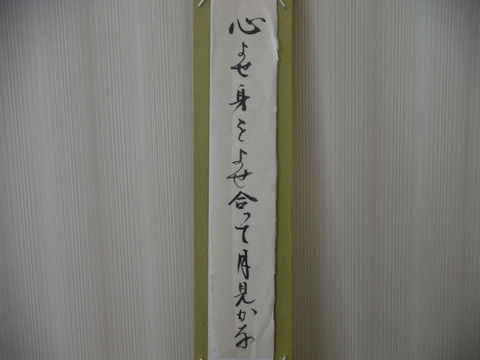 心よせ身をよせ合って月見かな